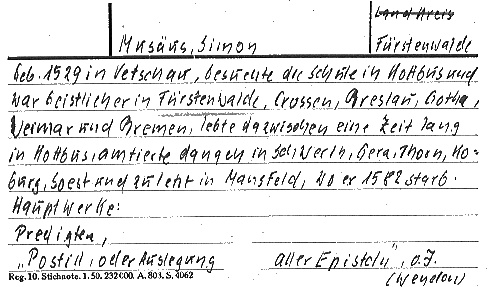 Land Kreis
Musäus, Simon Fürstenwalde
Geb. 1529 in Vetschau, besuchte die Schule in Kottbus und
war Geistlicher in Fürstenwalde, Crossen, Breslau, Gotha,
Weimar und Bremen, lebte dazwischen eine Zeit lang
in Kottbus, amtierte dangen in Schwerin, Gera, Thorn, Ko-
burg, Soest und zuletzt in Mansfeld, wo er 1582 starb.
Hauptwerke:
Predigten,
"Postill, oder Auslegung aller Episteln", o. J.
(Wendon)
Reg. 10. Stichnote. 1. 50. 232000. A. 803. S. 4062